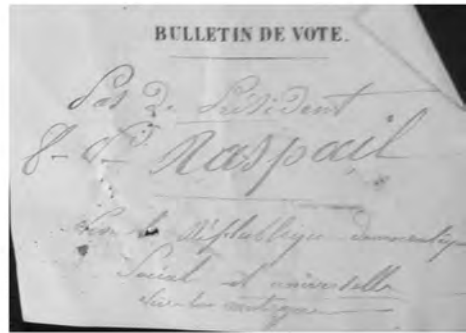 BULLETIN DE VOTE.
Pas de Président
Raspail
Vive la République démocratique
Social et universelle
Vive la